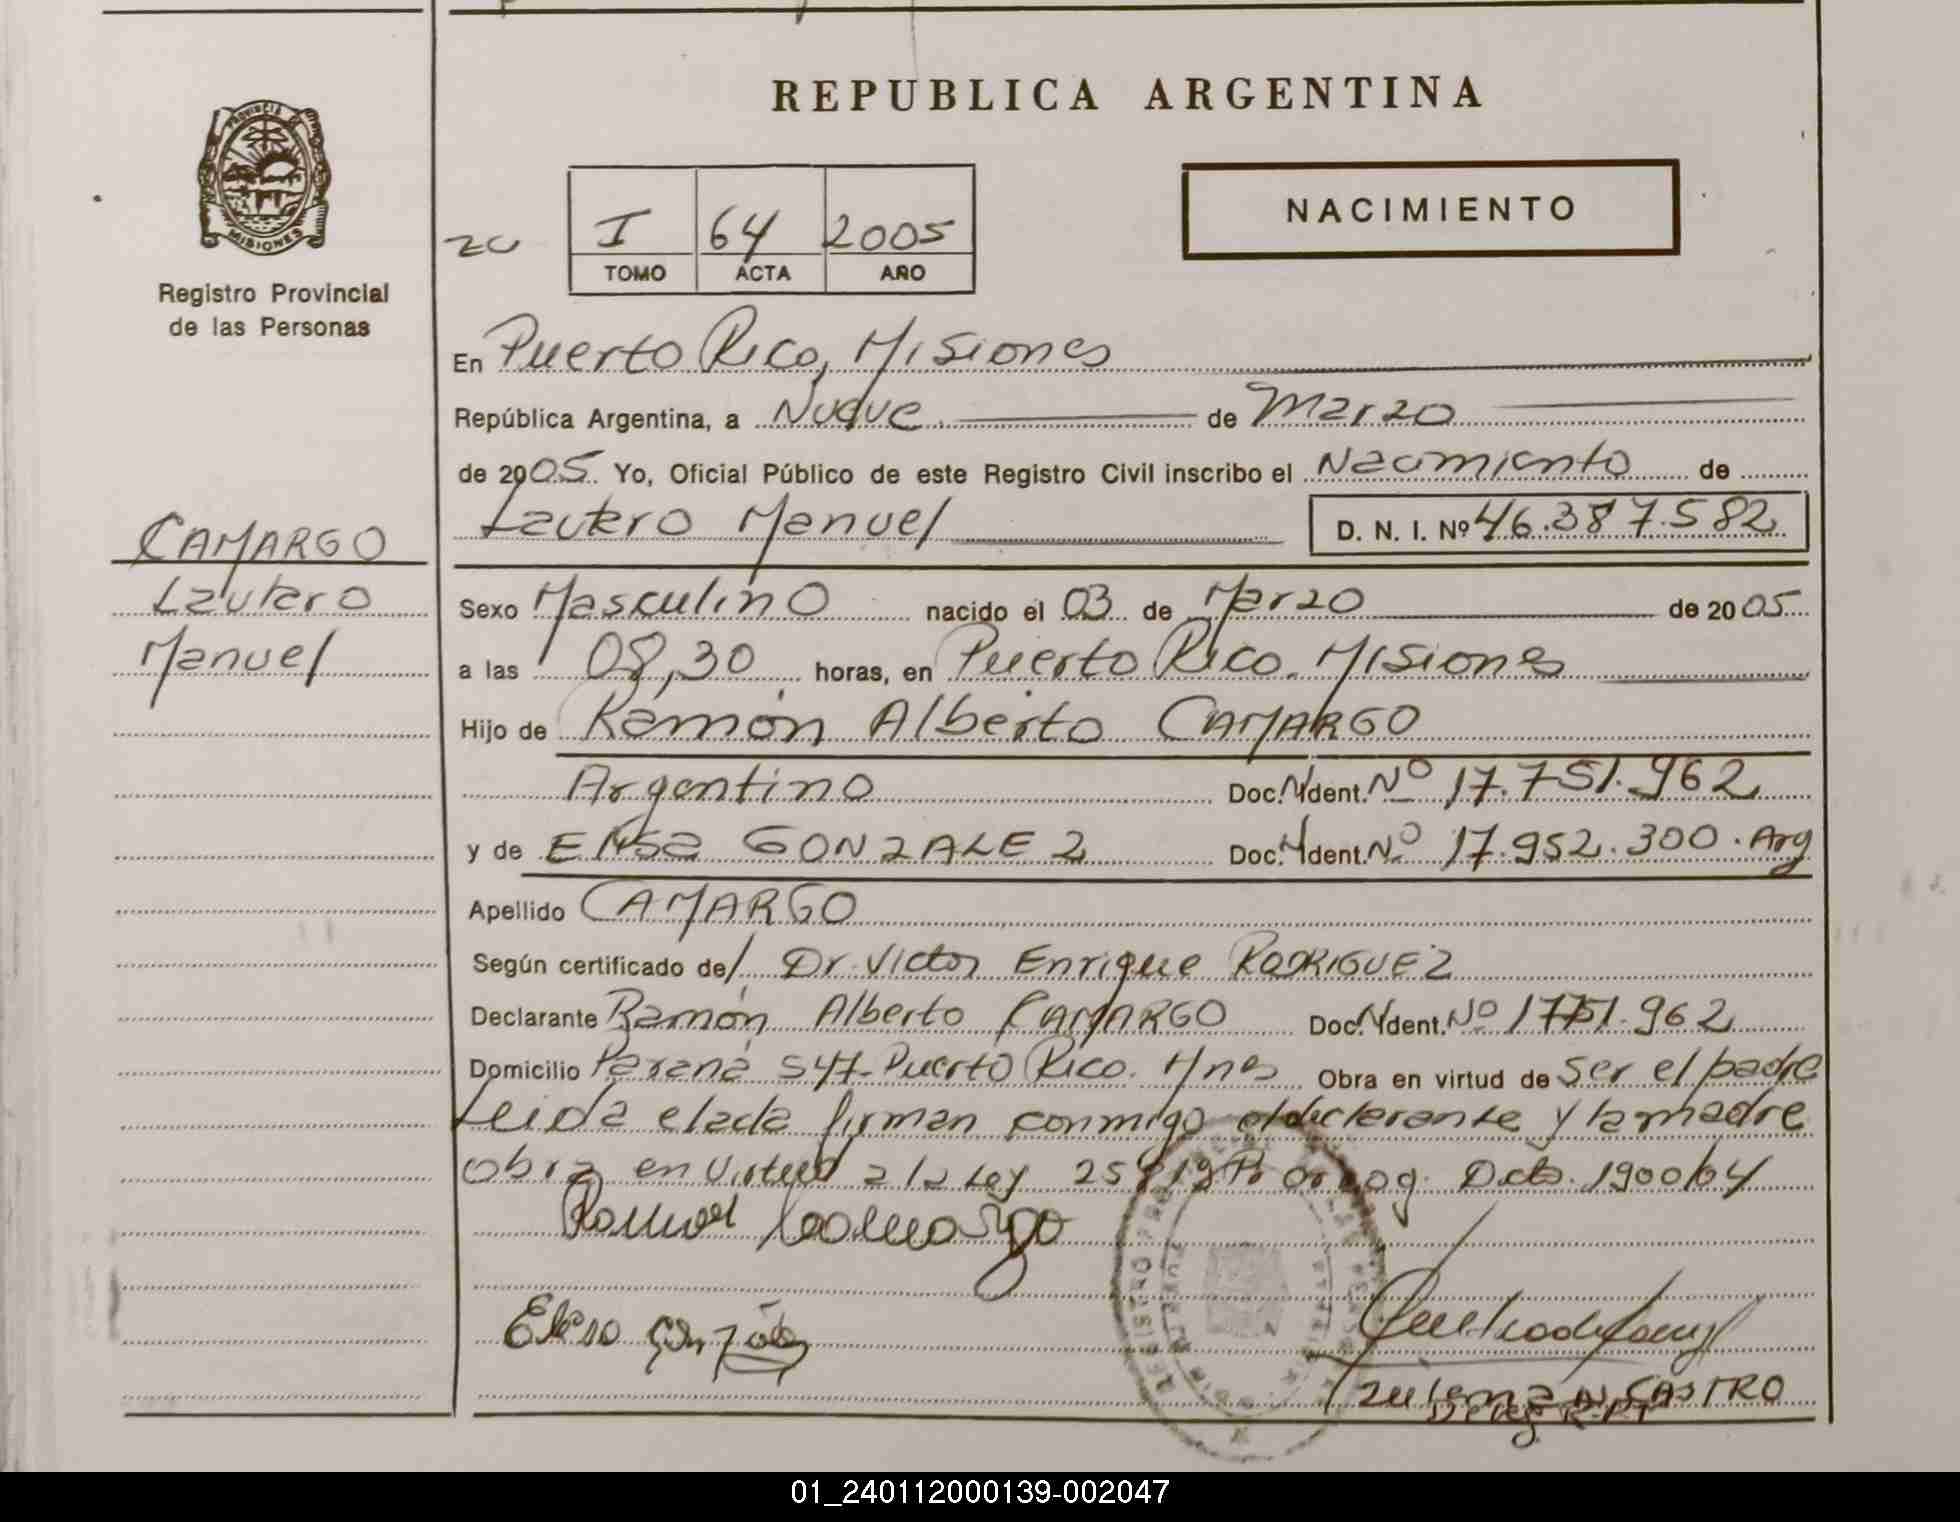 REPUBLICA ARGENTINA
PROVINCIA DE
MISIONES
Registro Provincial
de las Personas
NACIMIENTO
I 64 2005
TOMO ACTA AÑO
En Puerto Rico, Misiones
República Argentina, a Nueve de Marzo
de 2005 Yo, Oficial Público de este Registro Civil inscribo el Nacimiento de
Lautaro Manuel D. N. I. Nº 46.387.582
CAMARGO
Lautaro
Manuel
Sexo Masculino nacido el 03 de Marzo de 2005
a las 08,30 horas, en Puerto Rico. Misiones
Hijo de Ramón Alberto CAMARGO
Argentino Doc. Ident. Nº 17.751.962
y de GONZALEZ Doc. Ident. Nº 17.952.300. Arg
Apellido CAMARGO
Según certificado de/ Dr. Victor Enrique RODRIGUEZ
Declarante Ramón Alberto CAMARGO Doc. Ident. Nº 17751.962
Domicilio Paraná 547- Puerto Rico. Mnes Obra en virtud de ser el padre
Leida el acta firman conmigo el declarante y la madre
obra en virtud a la Ley Prorrog. Dcto. 1900/04
Ramon Camargo
CASTRO
01_240112000139-002047